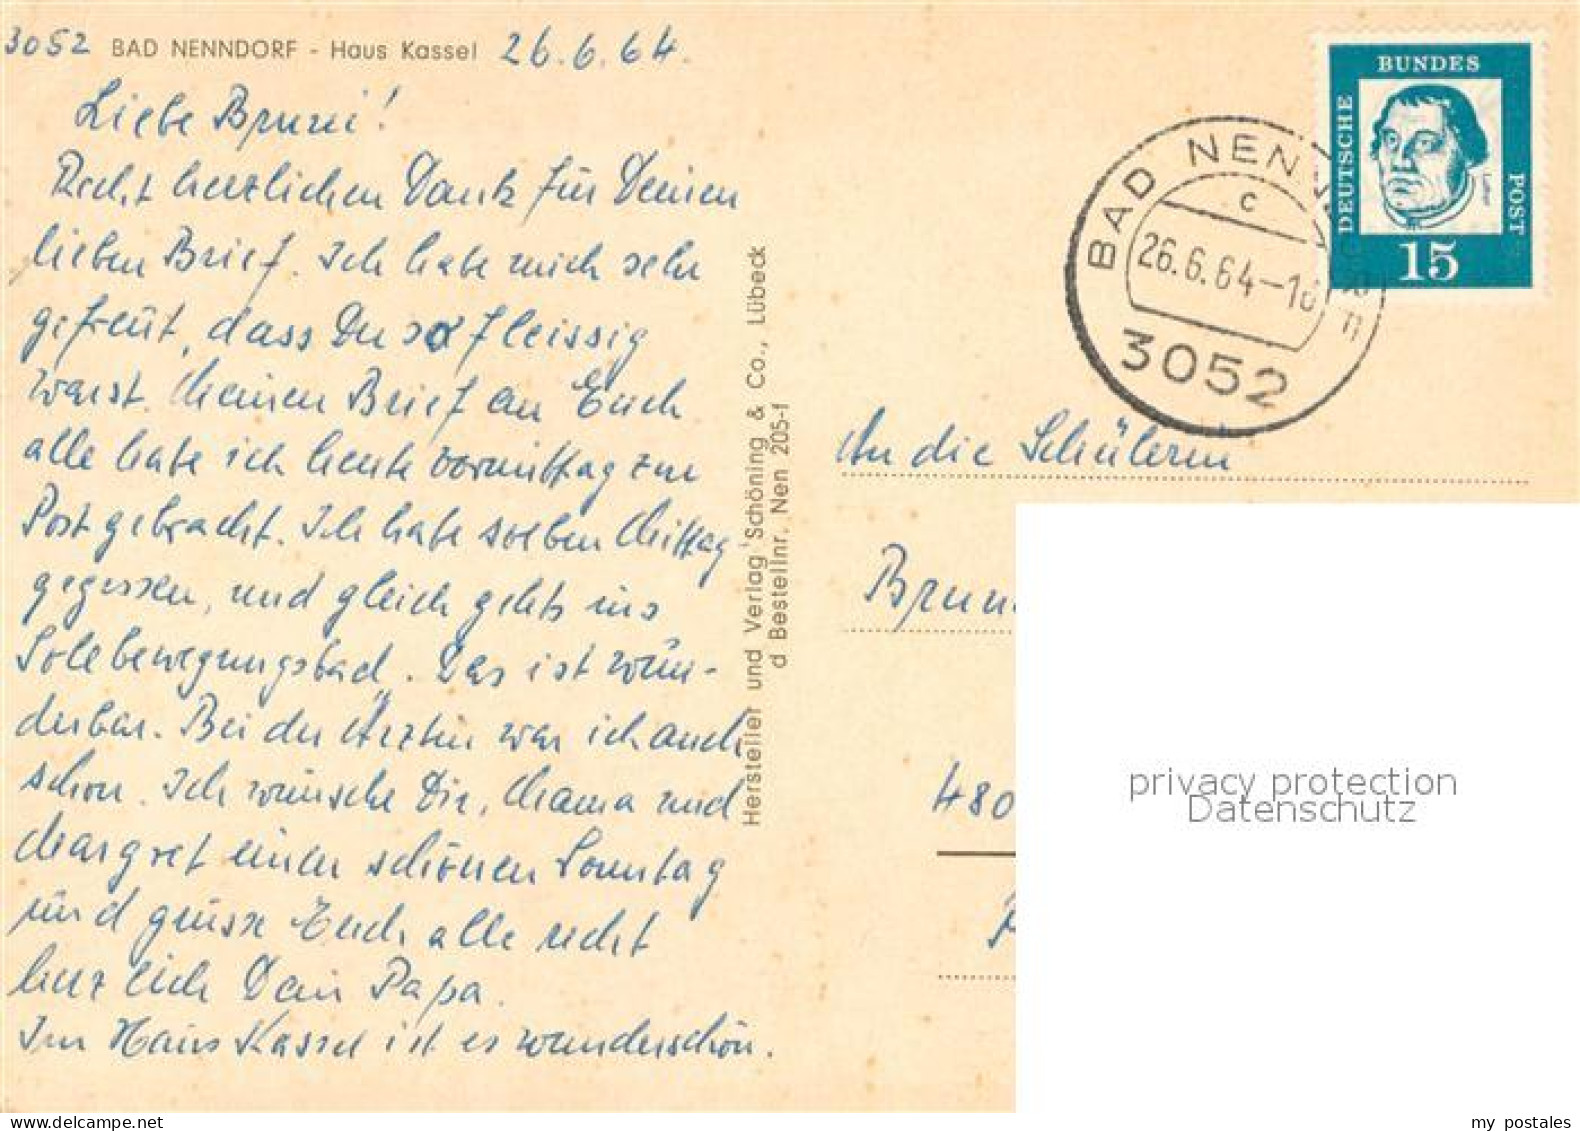 3052 BAD NENNDORF - Haus Kassel 26.6.64.
Liebe Bruni!
Recht herzlichen Dank für Deinen
lieben Brief. Ich habe mich sehr
gefreut, dass Du so fleissig
warst. Meinen Brief an Euch
alle habe ich heute vormittag zur
Post gebracht. Ich habe soeben Mittag
gegessen, und gleich gehts ins
Solebewegungsbad. Das ist wun-
derbar. Bei der Ärztin war ich auch
schon. Ich wünsche Dir, Mama und
Margret einen schönen Sonntag
und grüsse Euch alle recht
herzlich Dein Papa.
Im Haus Kassel ist es wunderschön.
Hersteller und Verlag Schöning & Co., Lübeck
d Bestellnr. Nen 205-f
DEUTSCHE BUNDES POST
Luther
15
BAD NENN
c
26.6.64-18
3052
An die Schülerin
Brun
480
privacy protection
Datenschutz
my postales